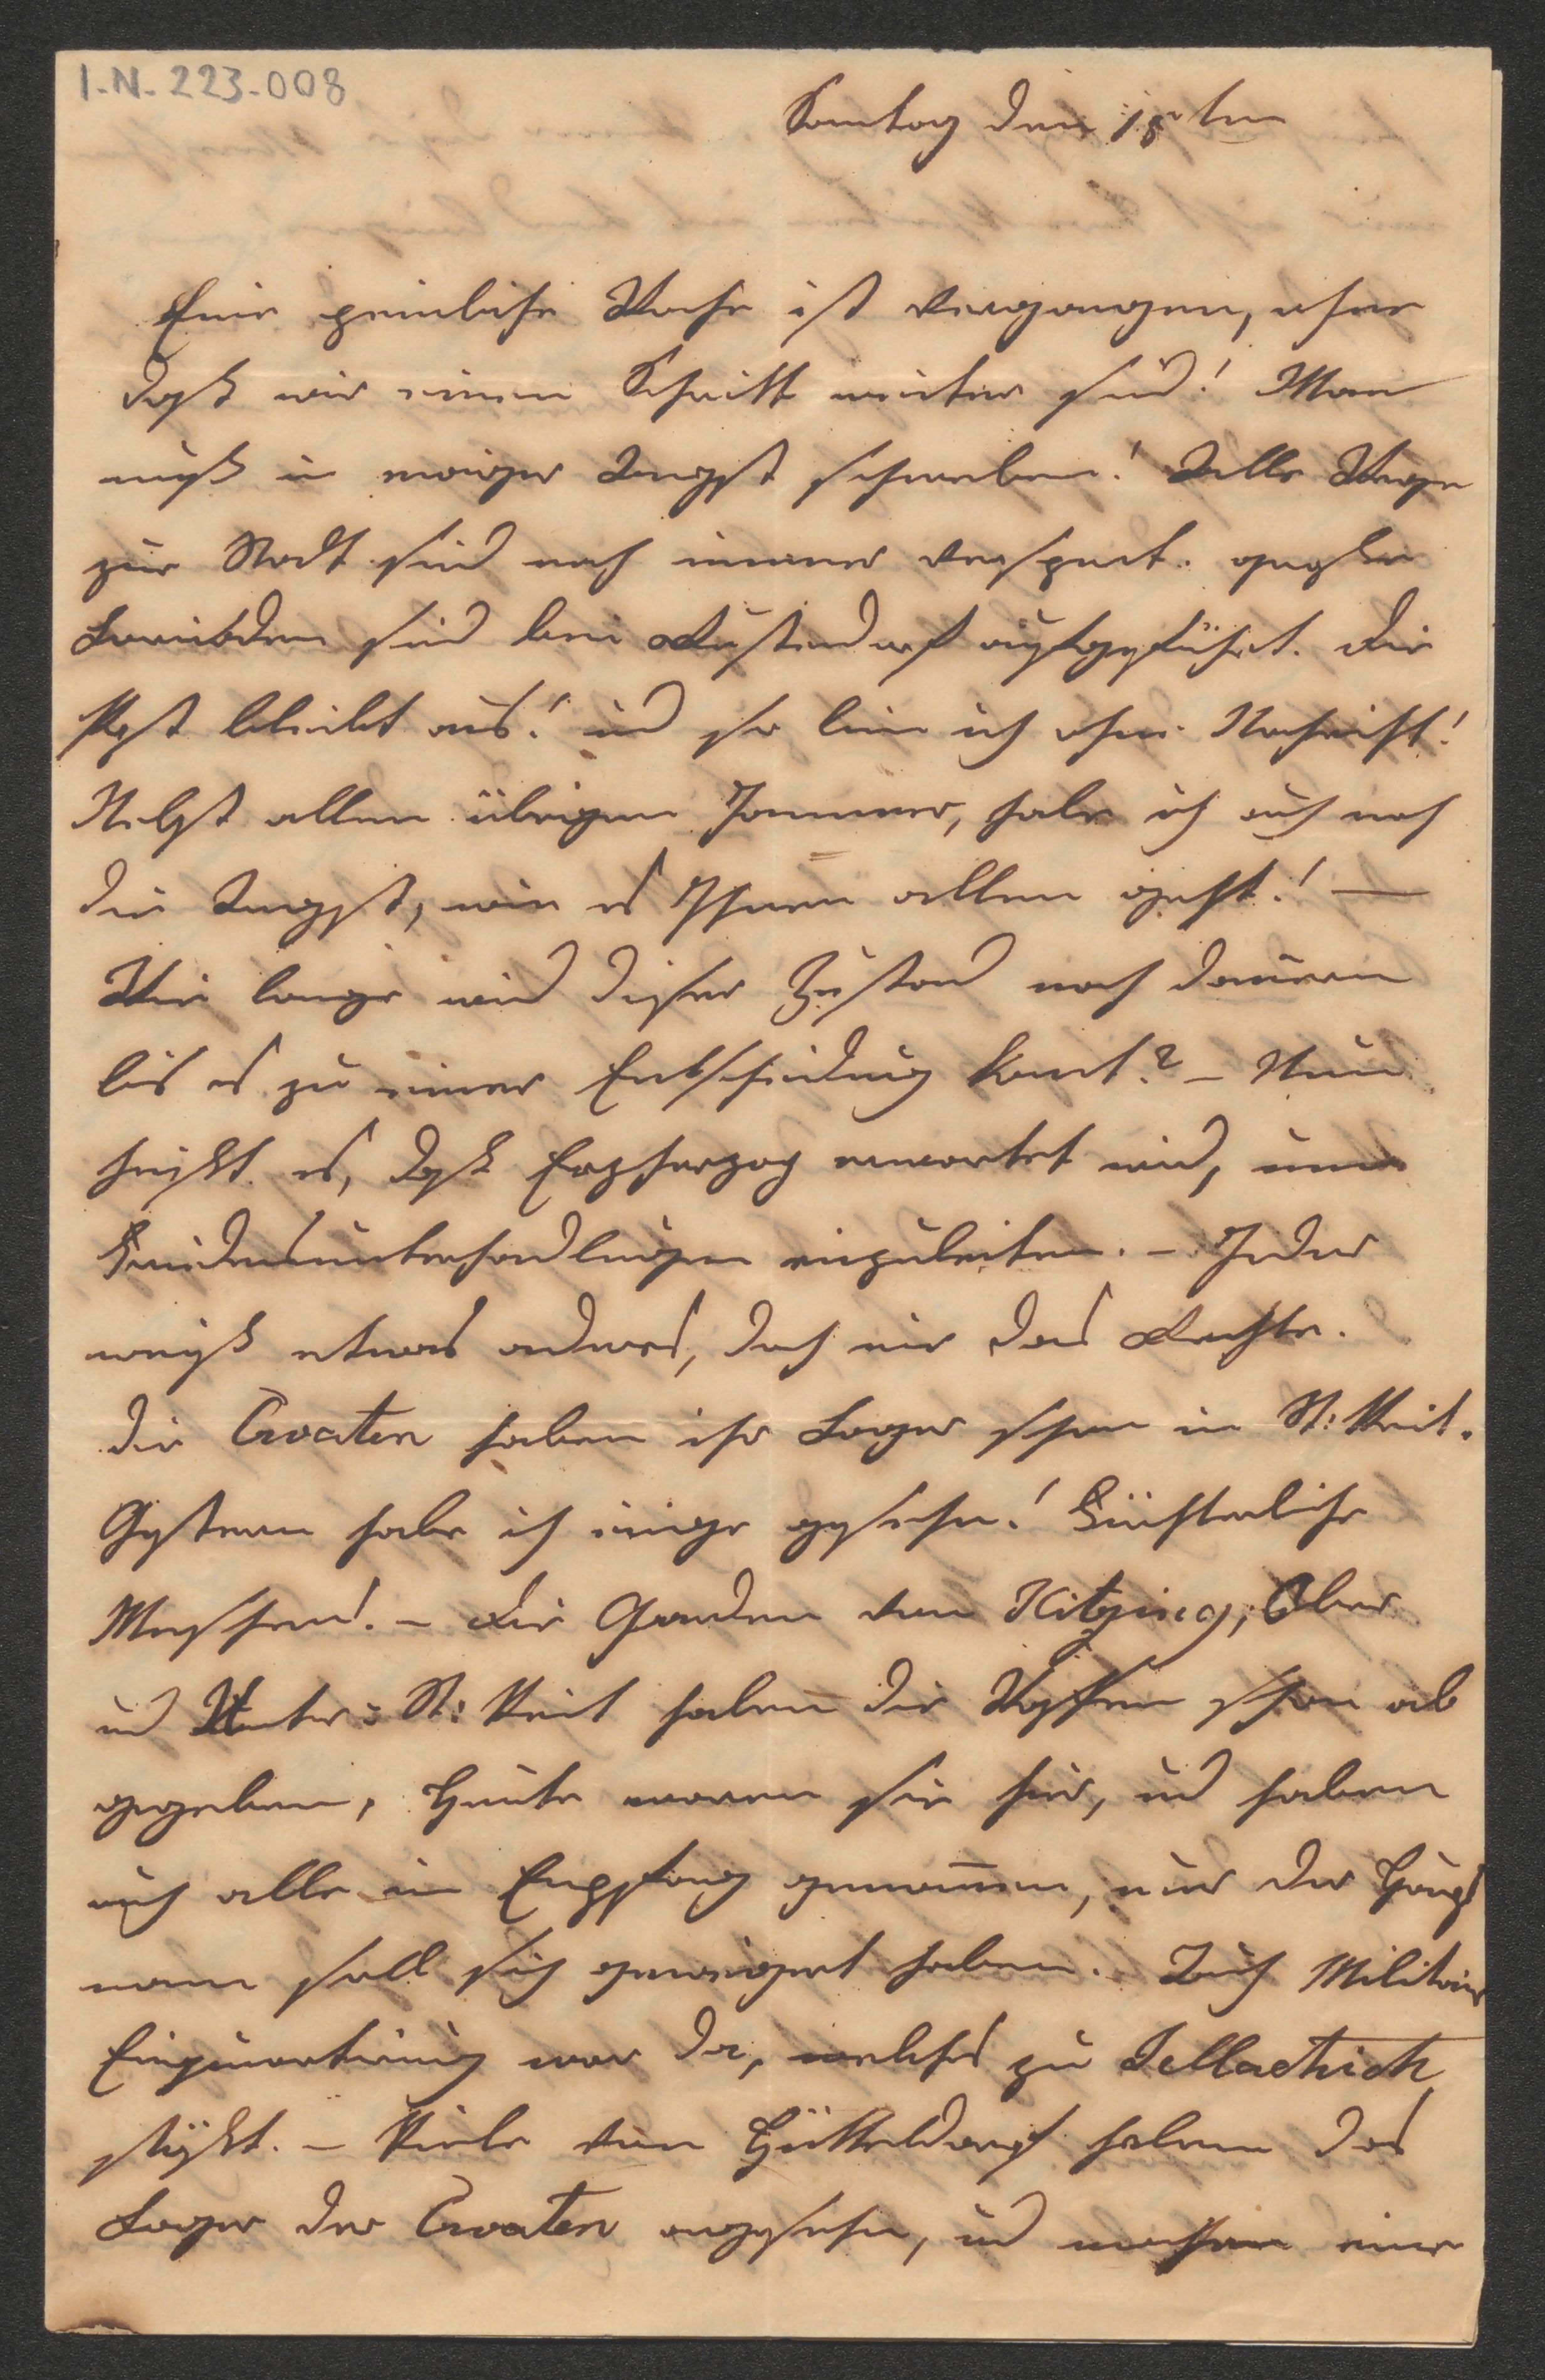 I.N. 223.008
Sontag den 15ten
Eine peinliche Woche ist vergangen, ohne
daß wir einen Schritt weiter sind! Man
muß in ewiger Angst schweben! Alle Wege
zur Stadt sind noch immer versperrt. große
Barikaden sind bei Rustendorf aufgeführt. Die
Post bleibt aus! und so bin ich ohne Nachricht!
Nebst allem übrigen Jammer, habe ich auch noch
die Angst, wie es Ihnen allen geht! —
Wie lange wird dieser Zustand noch dauern
bis es zu einer Entscheidung komt? – Nun
heißt es, daß Erzherzog erwartet wird, um
Friedensunterhandlungen einzuleiten. – Jeder
weiß etwas anderes, doch nie das Rechte.
die Croaten haben ihr Lager schon in St: Veit.
Gestern habe ich einige gesehen! Fürchterliche
Menschen! – Die Garden von Hitzing, Ober
und Unter: St: Veit haben die Waffen schon ab
gegeben, Heute waren sie hier, und haben
auch alle in Empfang genom̅en, nur der Haupt
mann soll sich geweigert haben. Auch Militair
Einquartirung war da, welches zu Jellachich
stößt. – Viele von Hütteldorf haben das
Lager der Croaten angesehen, und machen eine